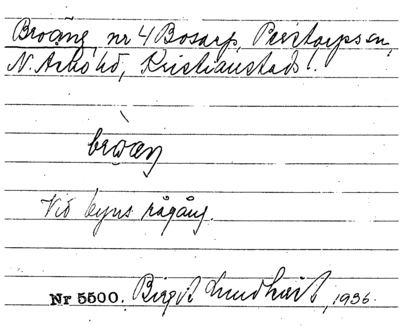 Broäng, nr 4 Bosarp, Prestorps sn,
N. Åsbo hd, Kristianstads l.
Vid byns rågång.
Nr 5500. Birgit Lundkvist, 1936.